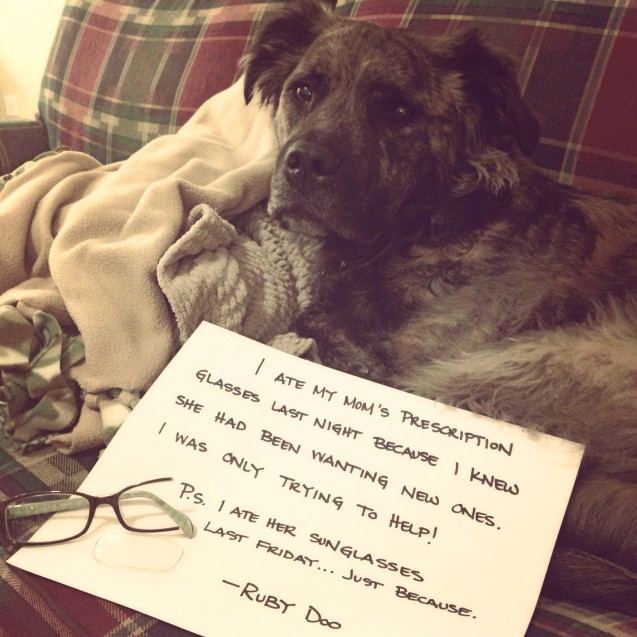 I ATE MY MOM'S PRESCRIPTION
GLASSES LAST NIGHT BECAUSE I KNEW
SHE HAD BEEN WANTING NEW ONES.
I WAS ONLY TRYING TO HELP!
P.S. I ATE HER SUNGLASSES
LAST FRIDAY... JUST BECAUSE.
—RUBY DOO